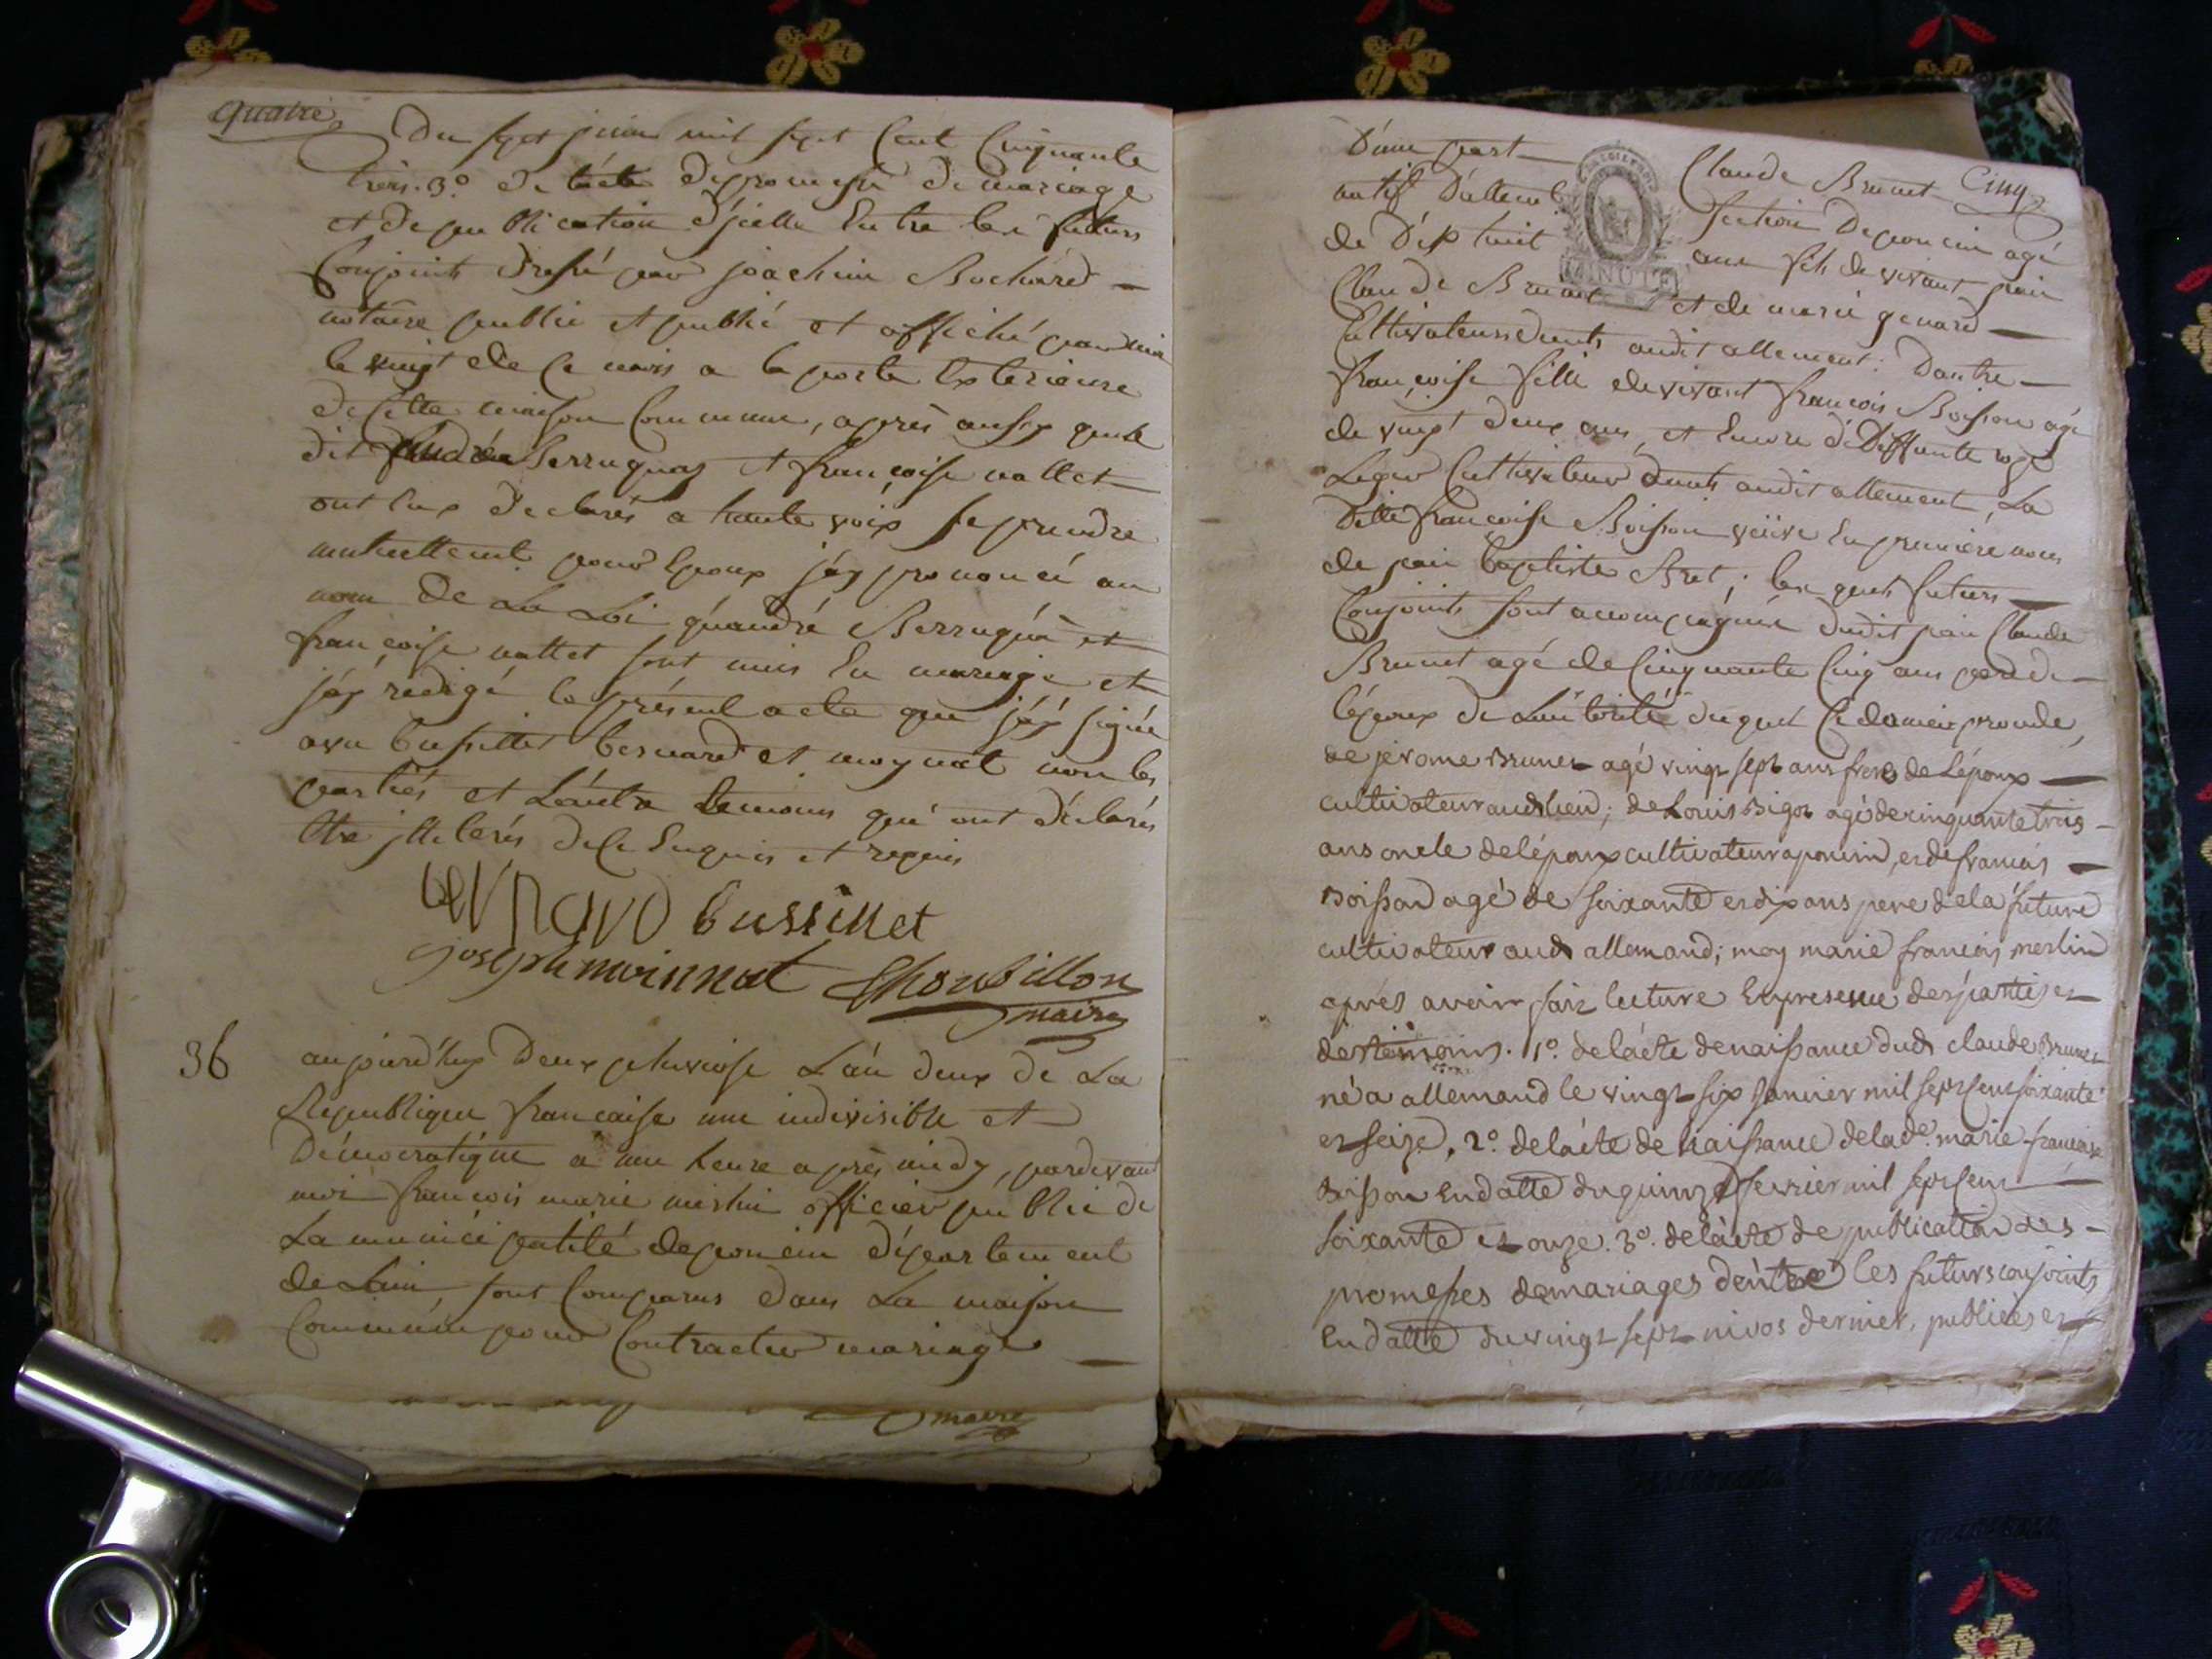 Quatre
Du sept juin mil sept Cent Cinquante
trois. 3.° de l'acte de promesse de mariage
et de publication d'jcelle Entre les futurs
Conjoints dressé par joachim Bochard
notaire public et publié et affiché par moi
le vingt de Ce mois a la porte Exterieure
de Cette maison Commune, après aussy que le
dit andré Berruquay et françoise vallet
ont Eux declarés a haute voix se prendre
mutuellement pour Epoux j'ay prononcé au
nom de La Loi qu'andré Berruqué et
françoise vallet sont unis En mariage et
j'ay rédigé le présent acte que j'ay signé
avec bussillet besnard et moynat non les
parties et L'autre temoins qui ont déclarés
être jlleterés de Ce Enquis et requis
bernard bussillet
joseph moinnat Chourbillon
maire
36
aujourd'huy Deux pluviose L'an deux de La
Republique francaise une indivisible et
Démocratique a une heure après midy, pardevant
moi françois marie merlin officier public de
La municipalité de poncin département
de Lain, sont Comparus dans La maison
Commune pour Contracter mariage
maire
D'une part Claude Brunet Cinq
natif D'allement section De poncin agé
de Dix huit ans fils de vivant jean
Claude Brunet et de marie genard
Cultivateurs audit allement: Dautre
françoise fille de vivant françois Boisson agé
de vingt deux ans, et Encore de Deffunte
Leger Cultivateur audit allement, La
Ditte françoise Boisson veüve En premiere noces
de jean baptiste Bret; les quels futurs
Conjoints sont accompagnés dudit jean Claude
Brunet agé de Cinquante Cinq ans père de
l'époux de L'autorité duquel Ce dernier procede,
de jerome Brunet agé vingt sept ans frere de L'époux
cultivateur aud lieu; de Louis Bigot agé de cinquante trois
ans oncle de l'époux cultivateur a poncin, et de francois
Boisson agé de soixante et dix ans pere de la future
cultivateur aud allemand; moy marie françois merlin
après avoir fait lecture En presence des parties et
des témoins. 1°. de l'acte de naissance dud claude Brunet
né a allemand le vingt six janvier mil sept cent soixante
et seize, 2°. de l'acte de naissance de lade. marie francoise
Boisson En datte du quinze fevrier mil sept cent
soixante et onze. 3°. de l'acte de publication des
promesses de mariages d'entre les futurs conjoints
En datte du vingt sept nivos dernier, publiées et